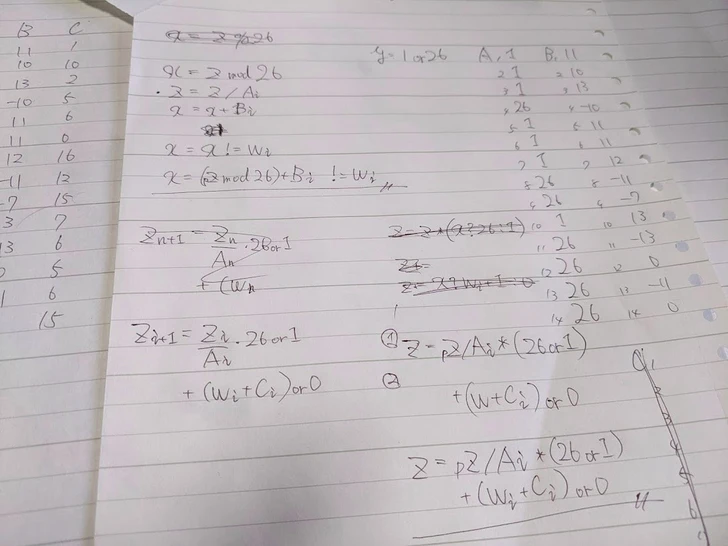 B C
11 1
10 10
13 2
-10 5
11 6
11 0
12 16
-11 12
-7 15
3 7
13 6
0 5
1 6
15
x = z % 26
x = z mod 26
· z = z / Ai
x = x + Bi
x = x != Wi
x = (pz mod 26) + Bi != Wi
Zn+1 = Zn / An · 26 or 1
+ (Wn
Zi+1 = Zi / Ai · 26 or 1
+ (Wi + Ci) or 0
y = 1 or 26 A, 1 B, 11
2 1 2 10
3 1 3 13
4 26 4 -10
5 1 5 11
6 1 6 11
7 1 7 12
8 26 8 -11
9 26 9 -7
z = z * (x ? 26 : 1) 10 1 10 13
11 26 11 -13
z = x ? Wi + 1 : 0 12 26 12 0
13 26 13 -11
14 26 14 0
① z = pz / Ai * (26 or 1)
② + (W + Ci) or 0
z = pz / Ai * (26 or 1)
+ (Wi + Ci) or 0